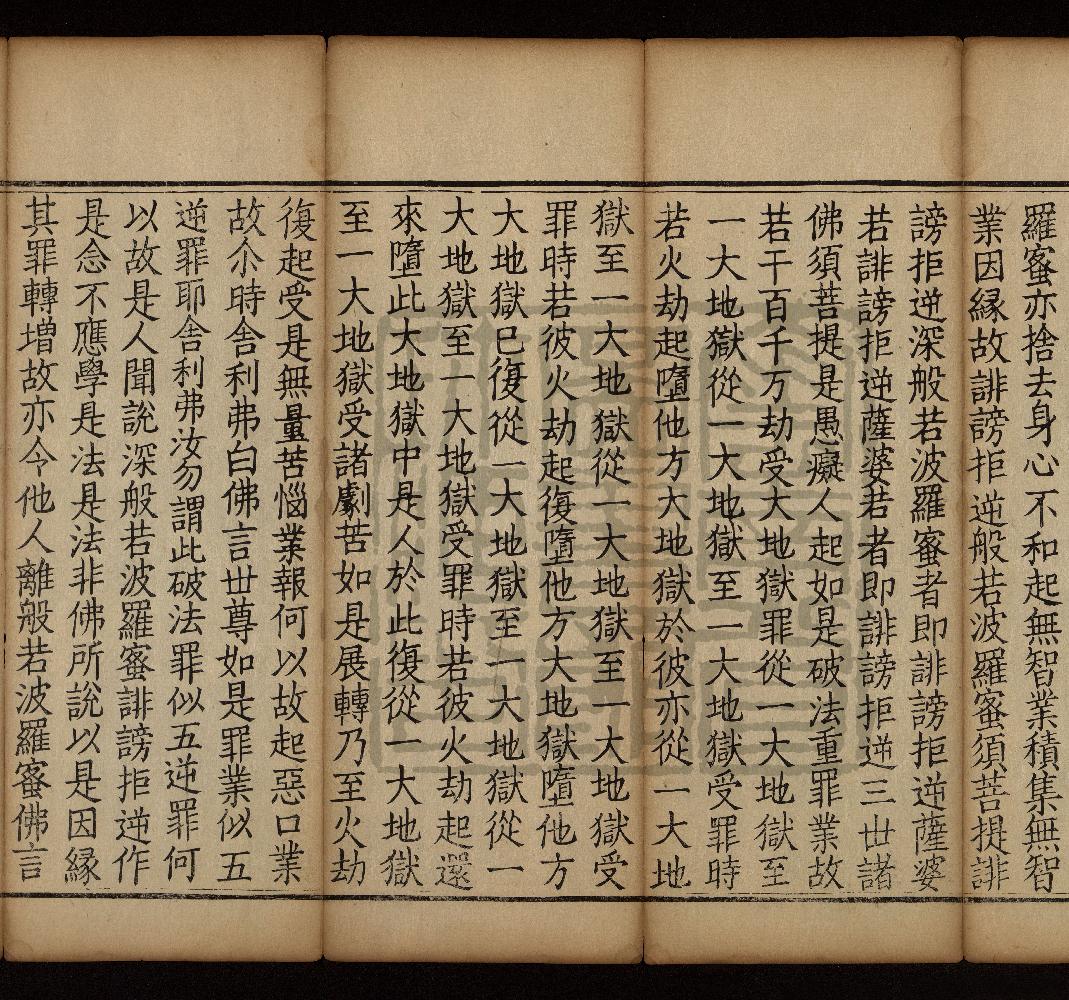 羅蜜亦捨去身心不和起無智業積集無智
業因縁故誹謗拒逆般若波羅蜜須菩提誹
謗拒逆深般若波羅蜜者即誹謗拒逆薩婆
若誹謗拒逆薩婆若者即誹謗拒逆三世諸
佛須菩提是愚癡人起如是破法重罪業故
若干百千万劫受大地獄罪從一大地獄至
一大地獄從一大地獄至一大地獄受罪時
若火劫起墮他方大地獄於彼亦從一大地
獄至一大地獄從一大地獄至一大地獄受
罪時若彼火劫起復墮他方大地獄墮他方
大地獄已復從一大地獄至一大地獄從一
大地獄至一大地獄受罪時若彼火劫起還
來墮此大地獄中是人於此復從一大地獄
至一大地獄受諸劇苦如是展轉乃至火劫
復起受是無量苦惱業報何以故起惡口業
故尒時舎利弗白佛言世尊如是罪業似五
逆罪耶舎利弗汝勿謂此破法罪似五逆罪何
以故是人聞說深般若波羅蜜誹謗拒逆作
是念不應學是法是法非佛所說以是因縁
其罪轉増故亦令他人離般若波羅蜜佛言